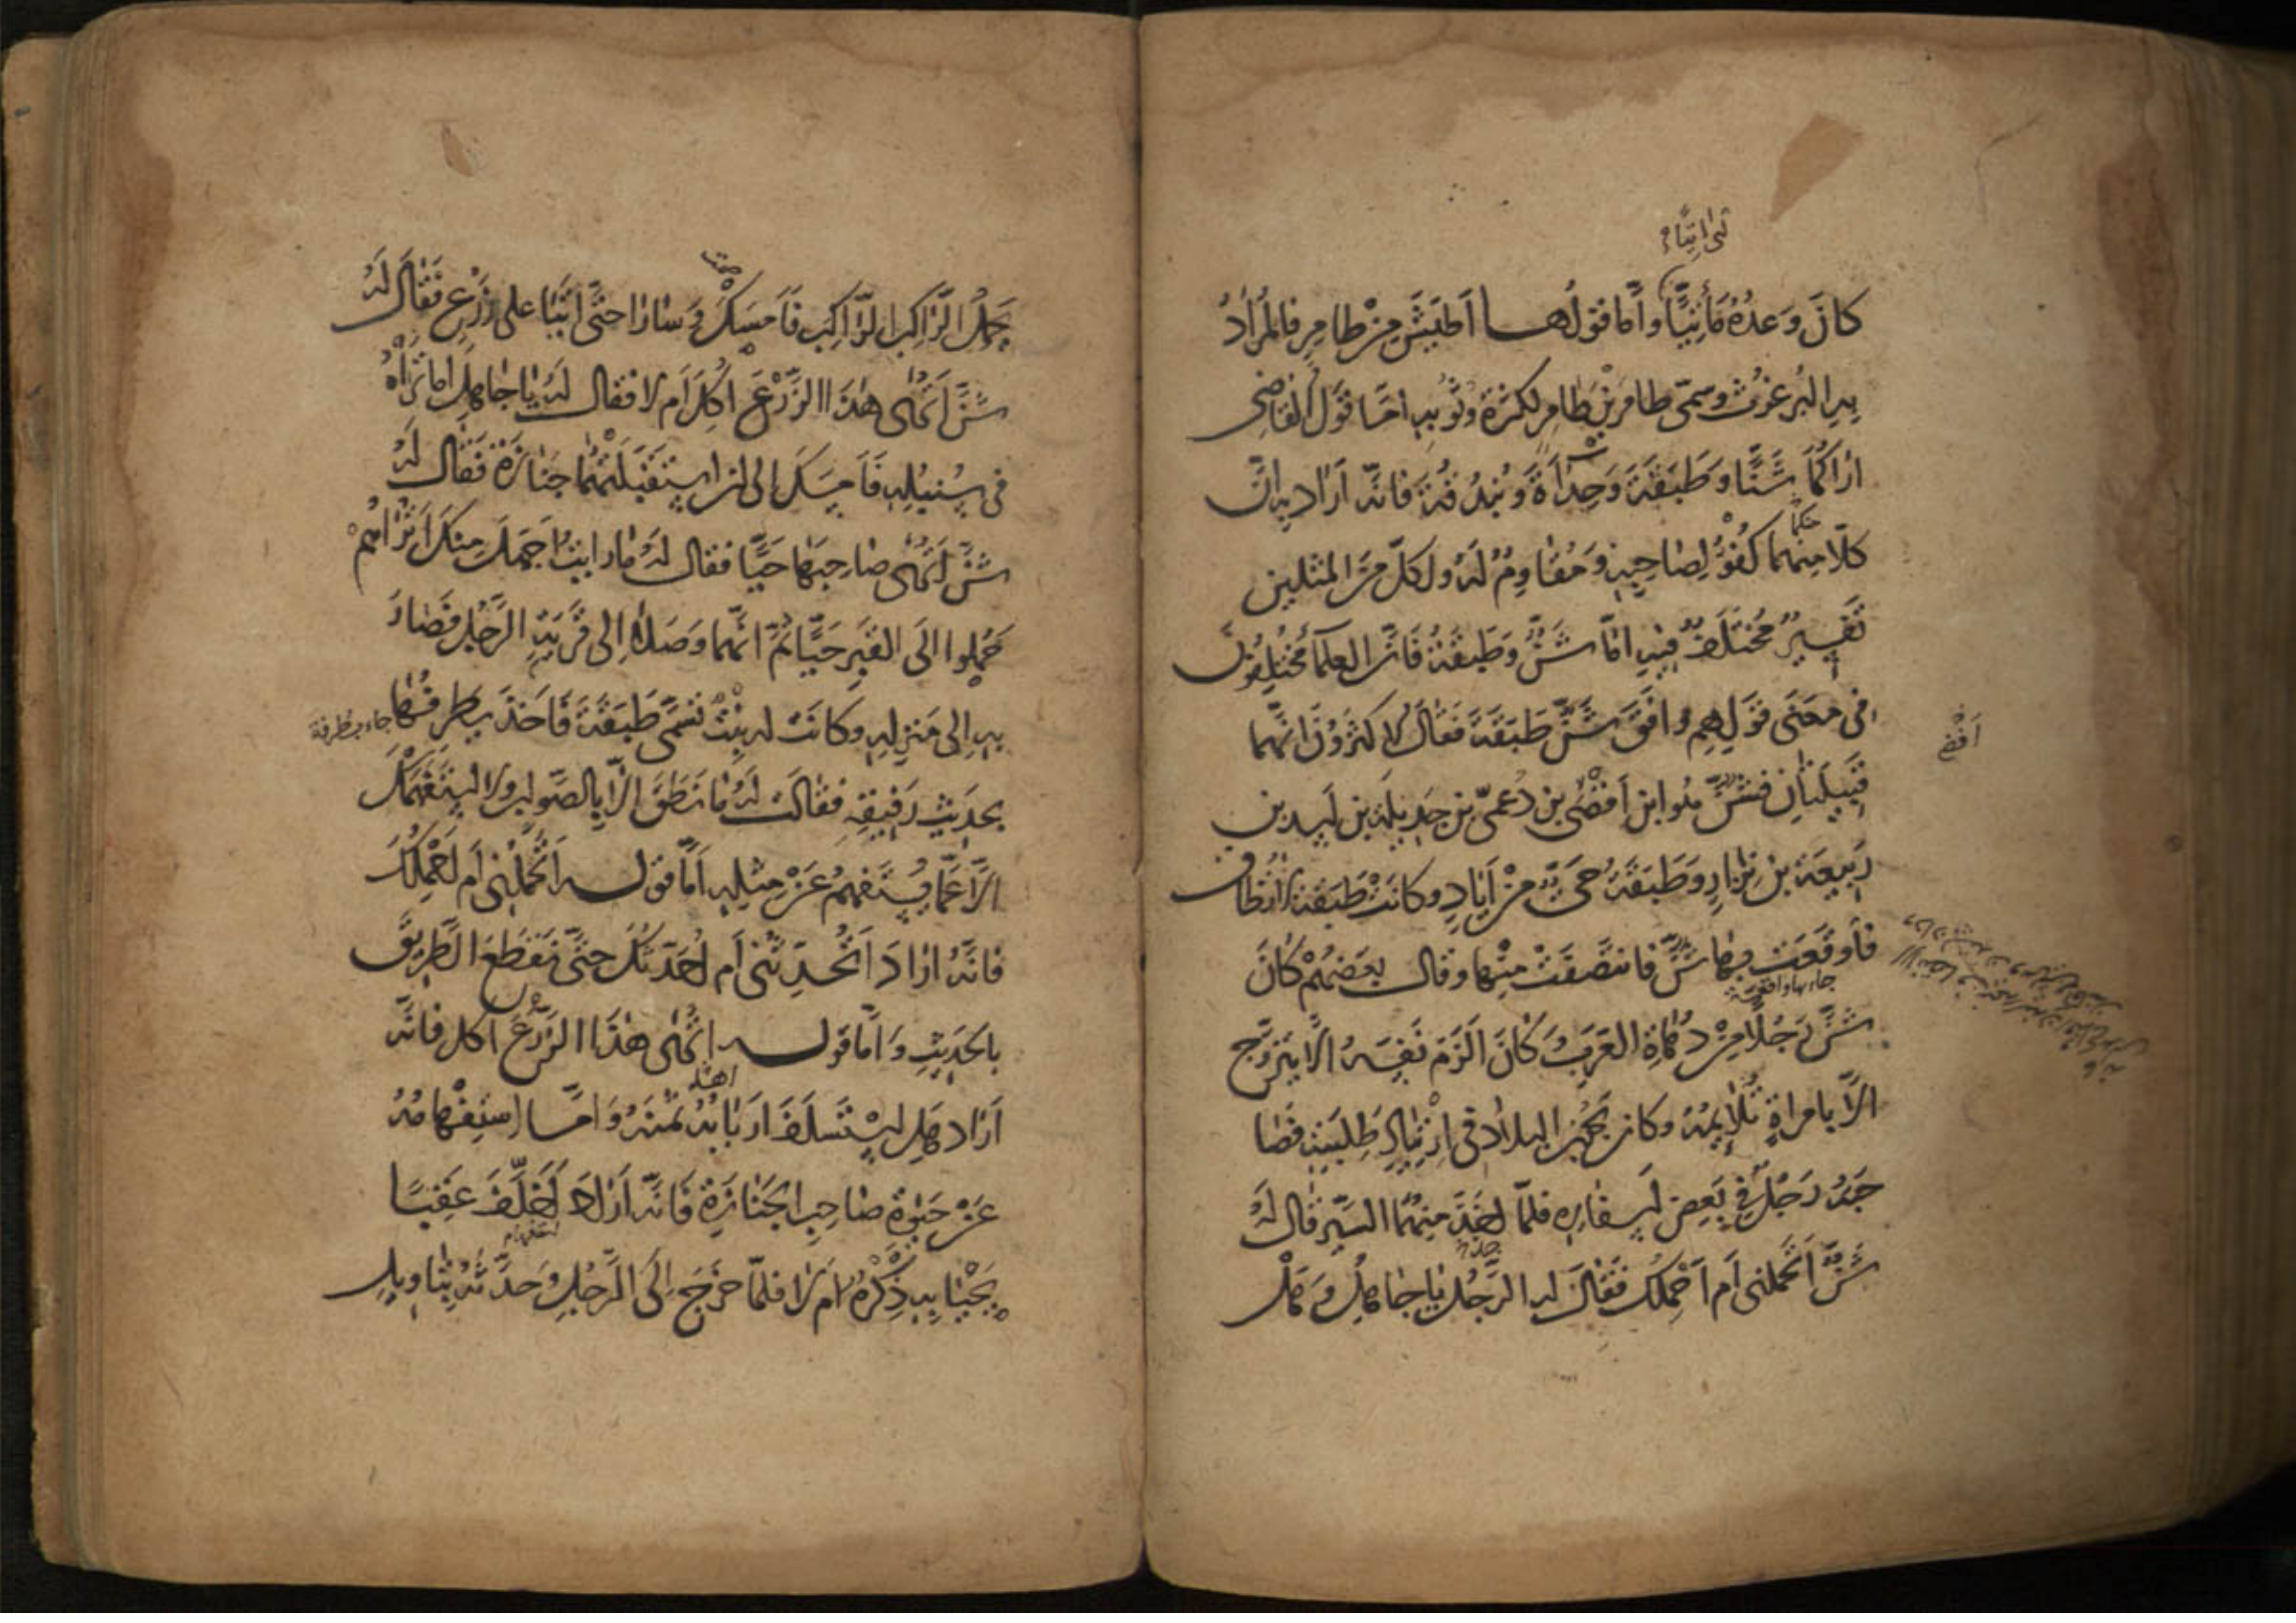 أى اتيا
كانَ وَعدُهُ مَأْتِيًّا واَمّا قولُها اَطيَشُ مِنْ طامِرٍ فالمُرادُ
بِهِ البُرغوثُ وسمّى طامرَ بْنَ طامِرٍ لكثرة وُثُوبِهِ امّا قَوْلُ القاضِى
اراكُمَا شَنًّا وَطَبَقَةَ وَحِدَأَةً وَبُنْدُقَةَ فانّه اَرَادَ بِهِ انّ
كلّا منهما كُفْؤٌ لِصَاحِبِهِ وَمُقَاوِمٌ لَهُ ولكلّ مِنَ المثلين
تَفسِيرٌ مُختَلَفٌ فيهِ امّا شَنٌّ وَطَبقَةُ فَانّ العلمآءَ مُختَلِفُونَ
فى مَعنَى قَولِهِم وافَقَ شَنٌّ طَبَقَةَ فَقَالَ الاكثرُونَ انَّهُما
اَفْصَى
قَبِيلَتَانِ فشَنٌّ هُوَ ابن اَفْصَى بن دُعمِىّ بن جَدِيلَةَ بن اَسَدِ بن
رَبيعَة بنِ نِزَارٍ وَطَبَقَةُ حَىٌّ مِنْ اَيادٍ وكانَتْ طَبَقَةُ لا تُطَاقُ
فأوقَعَت بِهَا شَنٌّ فانتَصَفَتْ مِنْها وقال بعضهُمْ كانَ
شَنٌّ رَجُلًا مِنْ دُهَاةِ العَرَبِ وَكانَ اَلزَمَ نَفسَهُ اَلّا يتزوّج
الّا بامراةٍ تُلَائِمُهُ وكان يَجُوبُ البلادَ فى ارْتِيَادِ طِلبَتِهِ فصَا
حَبَهُ رَجُلٌ فِى بَعضِ اَسفَارِهِ فلمّا اخَذَ مِنهُمَا السّيرُ قال لَهُ
شَنٌّ اَتَحملنى اَم اَحْمِلُكَ فَقَالَ له الرّجُلُ يا جاهِلُ وهَلْ
يَحمِلُ الرَّاكِبُ الرّاكِبَ فَاَمسَكَ وَسَارَا حتّى اَتَيَا على زَرْعٍ فقَالَ لَهُ
شَنٌّ اَتُرَى هٰذَا الزَّرْعَ اُكِلَ اَم لا فقال لَهُ يا جاهِلُ اما تَرَاهُ
فى سُنبُلِهِ فَاَمسَكَ اِلى اَنِ استَقبَلَتْهُمَا جَنَازَةٌ فَقَال لَهُ
شَنٌّ اَتُرَى صَاحِبَهَا حَيًّا فقال لَهُ ما رايتُ اَجهَلَ مِنكَ اَتُرَاهُمْ
حَمَلُوا الَى القَبرِ حَيًّا ثُمَّ انّهُما وَصَلَا اِلى قَريَةِ الرَّجُلِ فَصَارَ
بِهِ اِلى مَنزِلِهِ وكانَتْ له بِنْتٌ تُسَمَّى طَبَقَةَ فَاَخَذَ يُطرِفُهَا
بحديثِ رَفِيقِهِ فقالَتْ لَهُ ما نَطَقَ الّا بالصّوابِ ولا استَفهَمَكَ
الّا عَمَّا يُستَفهَمُ عَنْ مِثلِهِ اَمَّا قولُه اَتَحمِلُنى اَم اَحْمِلُكَ
فانَّهُ ارَادَ اَتُحَدِّثُنى اَم اُحَدِّثُكَ حتّى نَقطَعَ الطّرِيقَ
بالحَديثِ وَاَمّا قَولُه اَتُرَى هٰذَا الزّرْعَ اُكِل فانّه
اَرَادَ هَلِ استَسلَفَ اَربَابُهُ ثَمَنَهُ وَامّا استِفْهَامُهُ
عَنْ حَيٰوةِ صَاحِبِ الجَنَازَةِ فَانّه اَرَادَ اَخَلَّفَ عَقِبًا
يَحْيَا بِهِ ذِكْرُهُ اَم لا فلمّا خرَجَ اِلَى الرَّجُلِ وَحدّثَهُ بِتَاويلِ